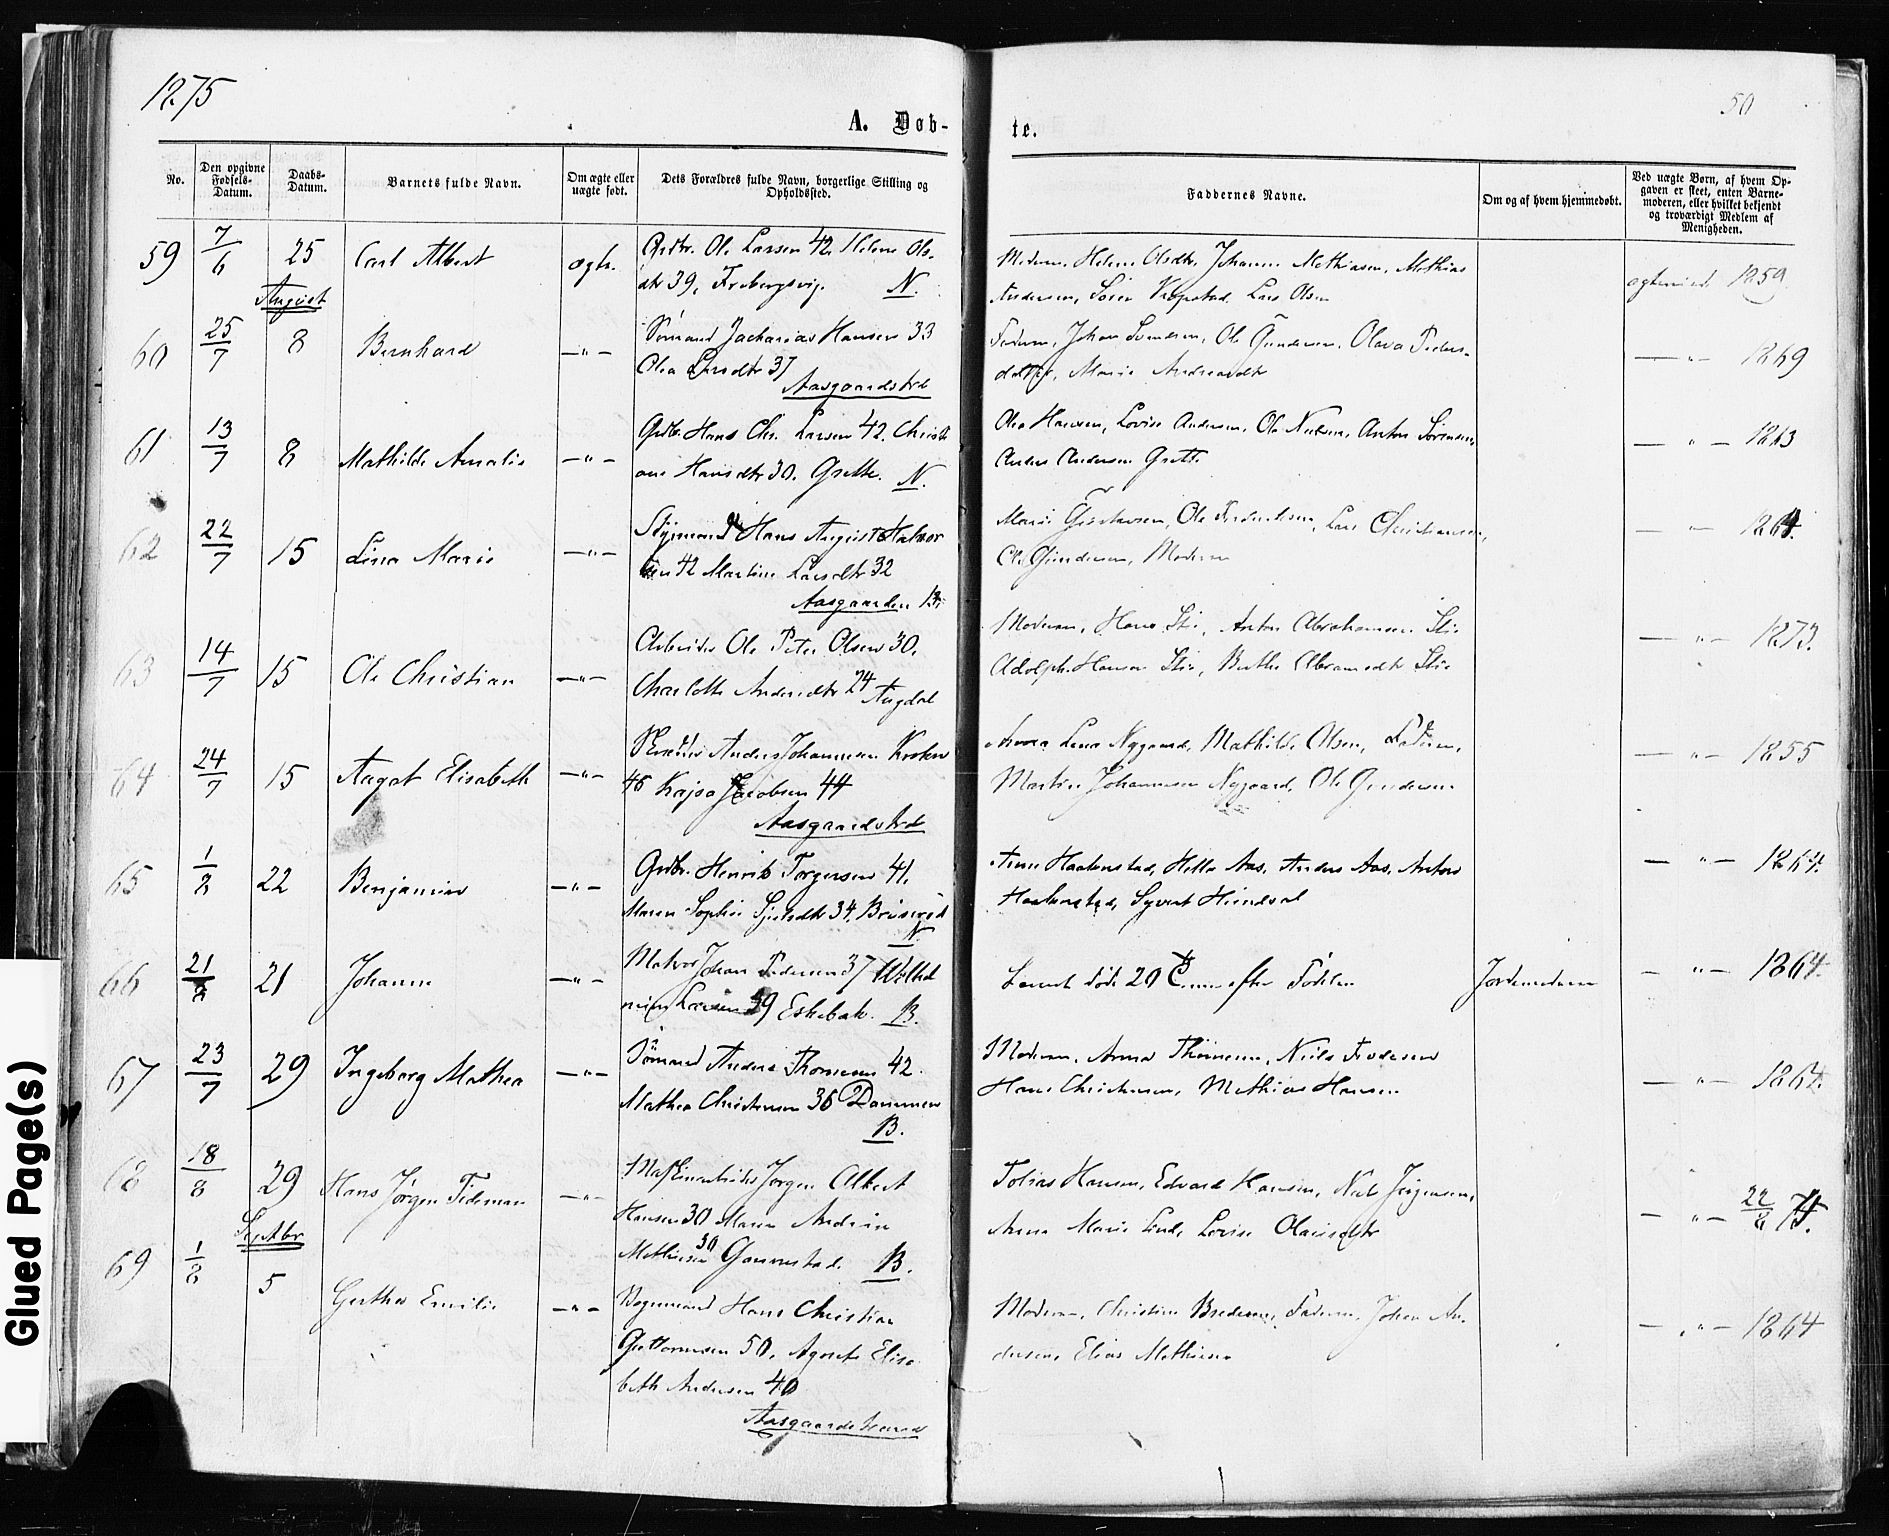 1875
50
A. Døb-
te.
No.
Den opgivne Fødsels-Datum.
Daabs-Datum.
Barnets fulde Navn.
Om ægte eller uægte født.
Dets Forældres fulde Navn, borgerlige Stilling og Opholdssted.
Faddernes Navne.
Om og af hvem hjemmedøbt.
Ved uægte Børn, af hvem Op-
gaven er skeet, enten Barne-
moderen, eller hvilket bekjendt
og troværdigt Medlem af
Menigheden.
59 7/6 25 Carl Albert ægte. Grdbr. Ole Larsen 42. Helene Ols-
dtr 39, Frebergsvig. N.
Moderen, Helene Olsdtr, Johanne Mathiasen, Mathias
Andersen, Lars Olsen
1859
August
60 25/7 8 Bernhard —"— Sømand Zacharias Hansen 33
Olea Larsdtr 37
Aasgaardstrd
Faderen, Johan Svendsen, Ole Gundersen, Olava Peders-
datter, Maria Andreasdtr
—"— 1869
61 13/7 8 Mathilde Amalie —"— Grdbr. Hans Chr. Larsen 42. Christi
ane Hansdtr 30. Grette. N.
Olea Hansen, Lovise Andersen, Ole Nielsen, Anton Sørensen,
Anders Andersen Grette
—"— 1863
62 22/7 15 Lina Marie —"— Styrmand Hans August Halvor
sen 42 Martine Larsdtr 32
Aasgaarden B.
Marie Gustavsen, Ole Frederiksen, Lars Christiansen,
Ole Gundersen, Moderen
—"— 1864.
63 14/7 15 Ole Christian —"— Arbeider Ole Peter Olsen 30.
Charlotte Andersdtr 24 Augdal
Moderen, Hans Stie, Anton Abrahamsen Stie
Adolph Hansen Stie, Berthe Abramsdtr Stie
—"— 1873.
64 24/7 15 Aagot Elisabeth —"— Skrædder Anders Johannesen Kroken
46 Kajsa Jacobsen 44
Aasgaardstrd
Anna Lena Nygaard, Mathilde Olsen, Faderen,
Martin Johannesen Nygaard, Ole Gundersen
—"— 1855
65 1/8 22 Benjamin —"— Grdbr. Henrik Torgersen 41.
Maren Sophie 34. N.
Anne Haabenstad, Helle Aas, Anders Aas, Anton
Haabenstad, Syvert
—"— 1864.
66 21/8 21 Johanne —"— Matros Johan Pedersen 37 Wilhel
mine Larsen 39 Eskebæk. B.
døde 20 efter Fødslen
Jordemoderen
—"— 1864.
67 23/7 29 Ingeborg Mathea —"— Sømand Anders Thomesen 42.
Mathea Christensen 36 Dammen
B.
Moderen, Anna Thomesen, Niels
Hans Christensen, Mathias Hansen
—"— 1864.
68 18/8 29 Hans Jørgen Tideman —"— Maskinarbeider Jørgen Albert
Hansen 30 Maren Andrine
Mathiesen 30 Gannestad. B.
Tobias Hansen, Edvard Hansen, Niels Jørgensen,
Anna Marie Lind, Lovise Olausdtr
—"— 22/8 74.
Septbr
69 1/8 5 Gerthe Emilie —"— Hans Christian
Guttormsen 50, Agnete Elisa
beth Andersen 40
Aasgaardstrand
Moderen, Christine Bredesen, Faderen, Johan An-
dersen, Elias Mathiesen
—"— 1864
Glued Page(s)